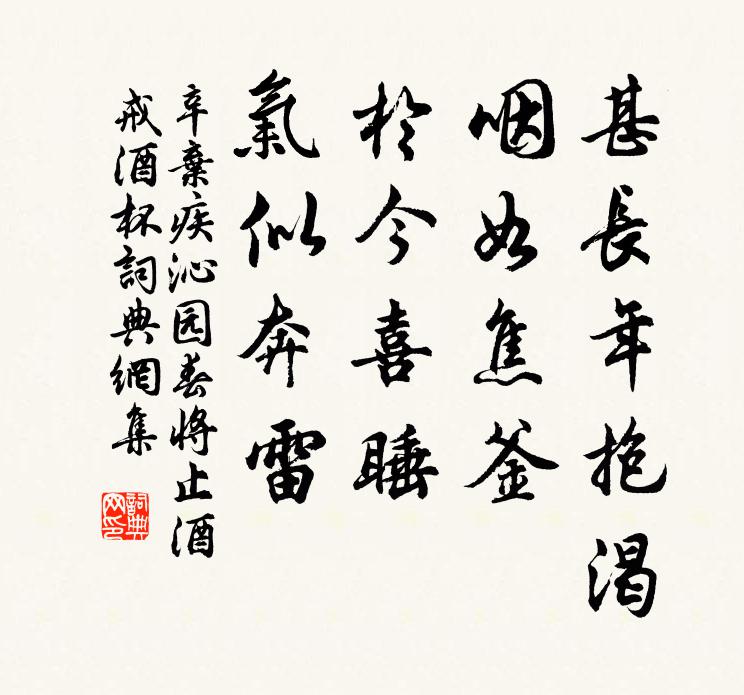 甚長年抱渴
咽如焦釜
於今喜睡
氣似奔雷
辛棄疾沁园春將止酒
戒酒杯詞典網集
詞典网印